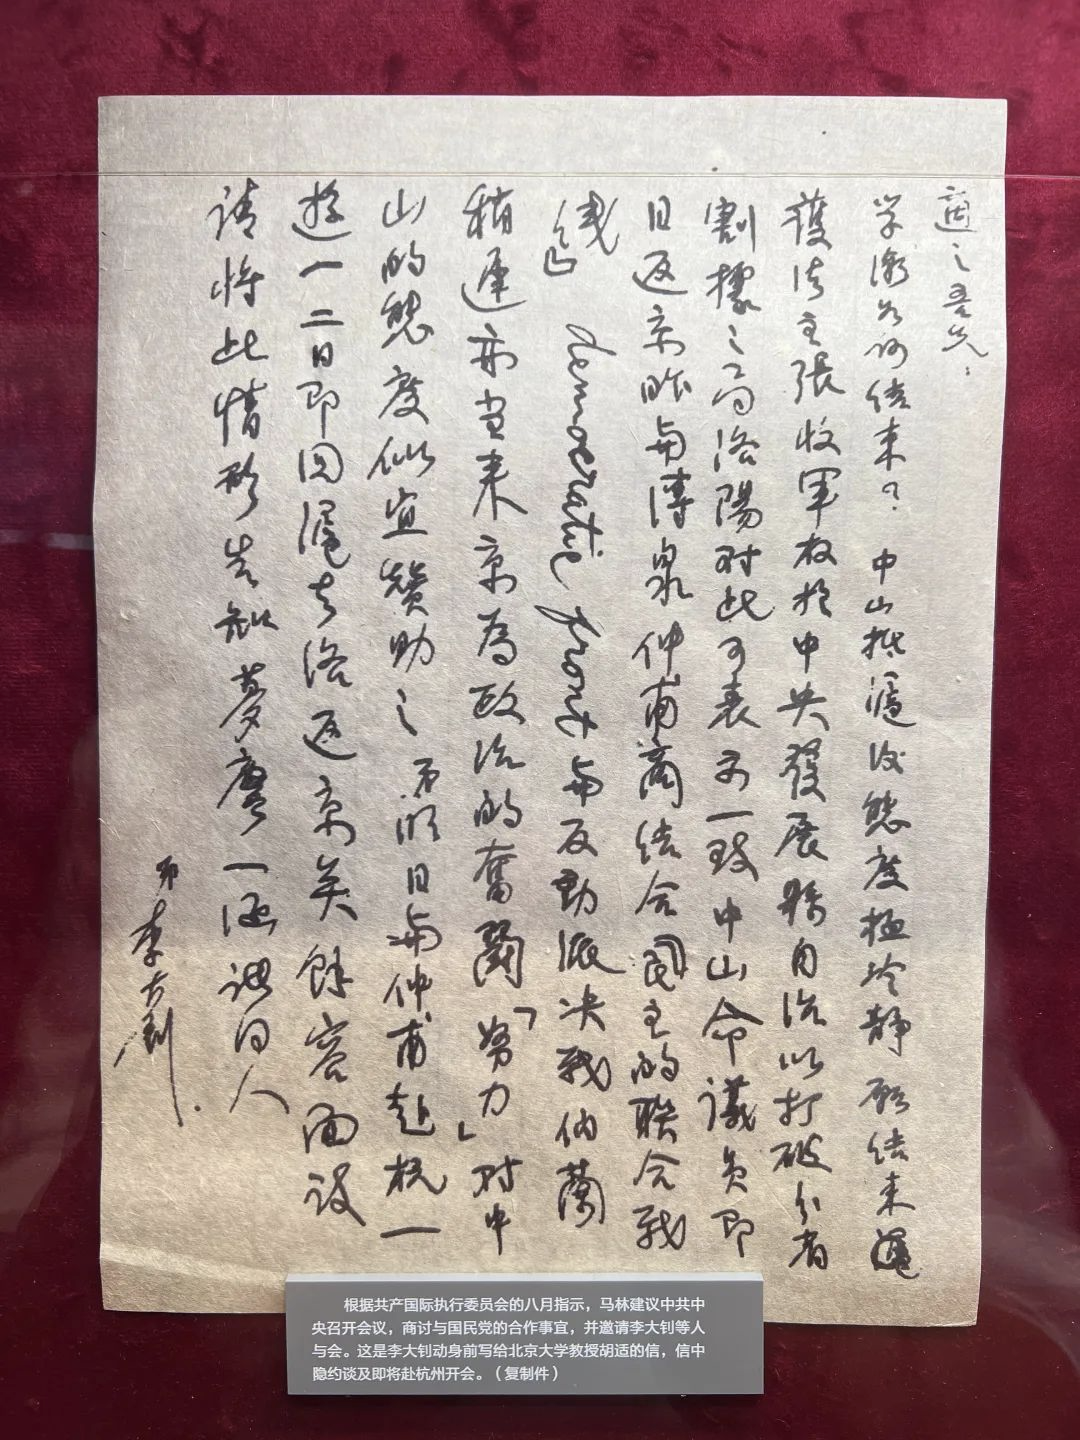 適之吾兄：
学潮如何結束？中山抵滬後態度極冷靜 願結束
護法主張收軍权於中央發展縣自治以打破分省
割據之局洛陽对此可表示一致中山命議員即
日返京昨与溥泉仲甫商結合「民主的聯合战
线」democratic front与反動派决战伯蘭
稍遲亦当来京為政治的奮鬪「努力」对中
山的態度似宜贊助之 弟明日与仲甫赴杭一
遊一二日即回滬去洛返京矣餘容面談
请将此情形告知夢麐一涵诸同人
弟李大釗.
根据共产国际执行委员会的八月指示，马林建议中共中
央召开会议，商讨与国民党的合作事宜，并邀请李大钊等人
与会。这是李大钊动身前写给北京大学教授胡适的信，信中
隐约谈及即将赴杭州开会。（复制件）